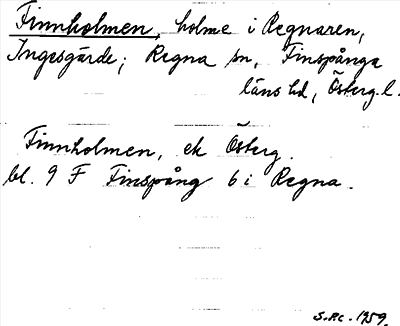 Finnholmen, holme i Regnaren,
Ingesgärde; Regna sn, Finspånga
läns hd, Österg. l.
Finnholmen, ek Österg.
bl. 9 F Finspång 6 i Regna.
S.P.C. 1959.